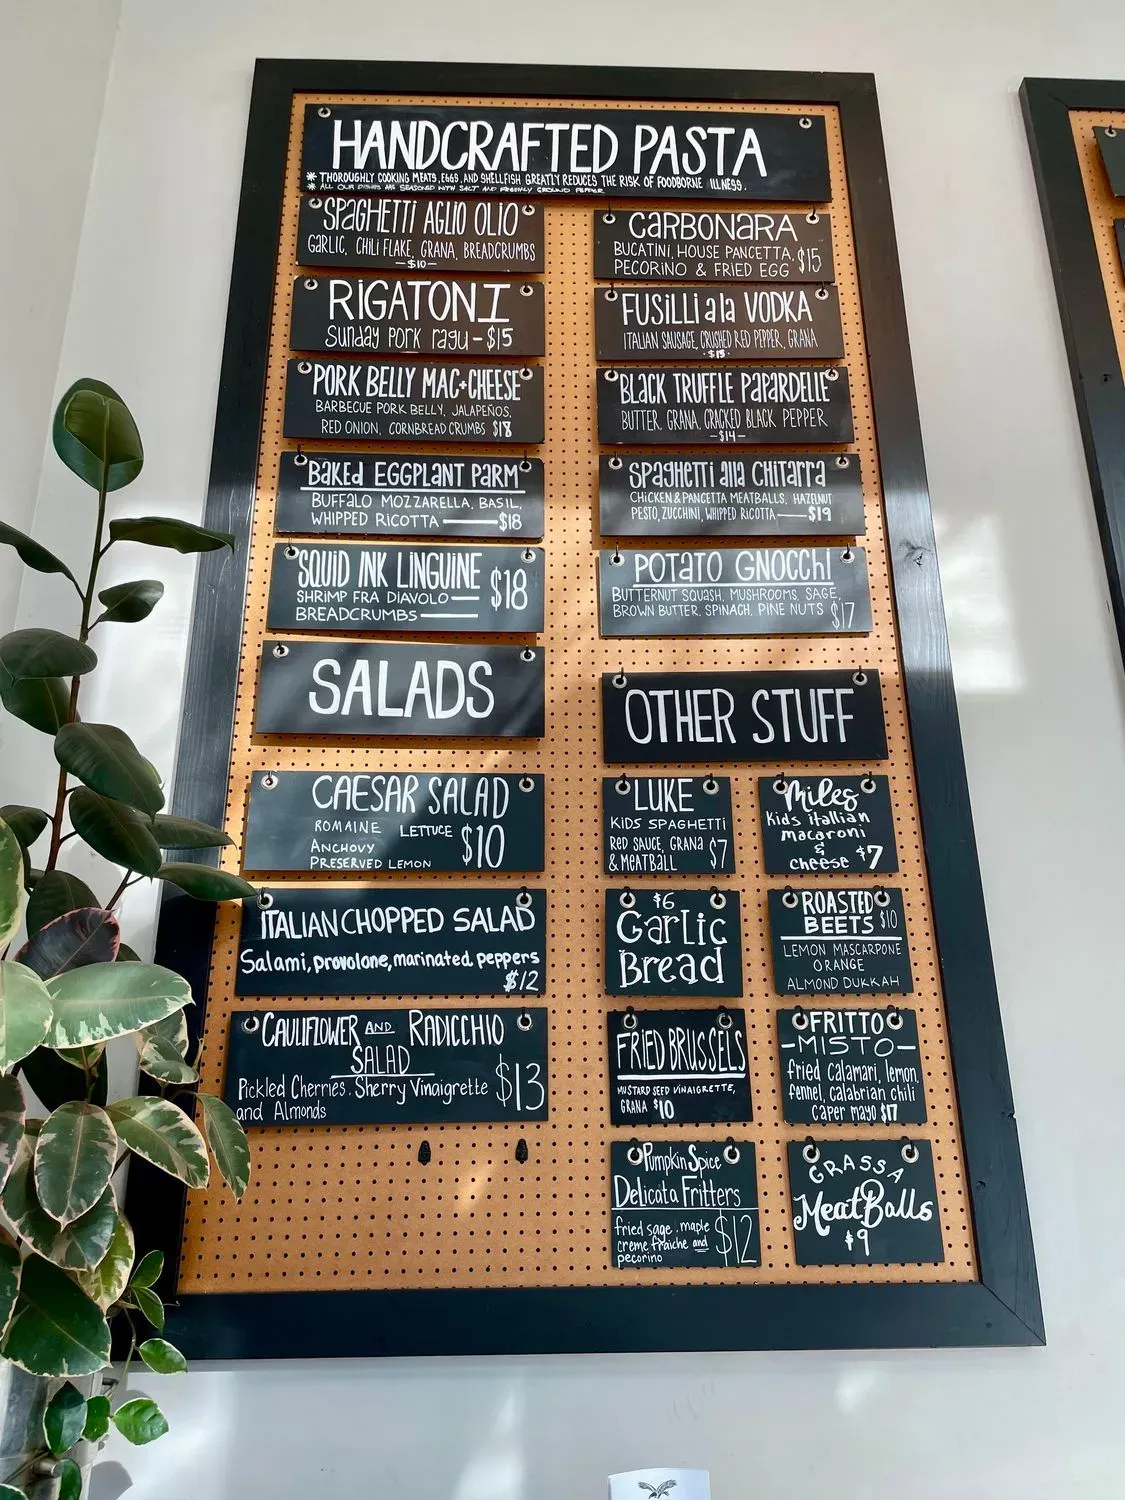 HANDCRAFTED PASTA
* THOROUGHLY COOKING MEATS, EGGS, AND SHELLFISH GREATLY REDUCES THE RISK OF FOODBORNE ILLNESS.
* ALL OUR DISHES ARE SEASONED WITH SALT AND FRESHLY GROUND PEPPER.
SPAGHETTI AGLIO OLIO
GARLIC, CHILI FLAKE, GRANA, BREADCRUMBS
—$10—
RIGATONI
Sunday pork ragu - $15
PORK BELLY MAC+CHEESE
BARBECUE PORK BELLY, JALAPEÑOS,
RED ONION, CORNBREAD CRUMBS $18
BAKED EGGPLANT PARM
BUFFALO MOZZARELLA, BASIL,
WHIPPED RICOTTA — $18
SQUID INK LINGUINE
SHRIMP FRA DIAVOLO —
BREADCRUMBS —
$18
CARBONARA
BUCATINI, HOUSE PANCETTA,
PECORINO & FRIED EGG $15
FUSILLI a la VODKA
ITALIAN SAUSAGE, CRUSHED RED PEPPER, GRANA
· $15 ·
BLACK TRUFFLE PAPARDELLE
BUTTER, GRANA, CRACKED BLACK PEPPER
—$14—
SPAGHETTI alla CHITARRA
CHICKEN & PANCETTA MEATBALLS, HAZELNUT
PESTO, ZUCCHINI, WHIPPED RICOTTA — $19
POTATO GNOCCHI
BUTTERNUT SQUASH, MUSHROOMS, SAGE,
BROWN BUTTER, SPINACH, PINE NUTS $17
SALADS
CAESAR SALAD
ROMAINE LETTUCE
ANCHOVY
PRESERVED LEMON
$10
ITALIAN CHOPPED SALAD
Salami, provolone, marinated peppers
$12
CAULIFLOWER AND RADICCHIO
SALAD
Pickled Cherries, Sherry Vinaigrette
and Almonds
$13
OTHER STUFF
LUKE
KIDS SPAGHETTI
RED SAUCE, GRANA
& MEATBALL $7
Miles
kids italian
macaroni
&
cheese $7
$6
Garlic
Bread
ROASTED
BEETS $10
LEMON MASCARPONE
ORANGE
ALMOND DUKKAH
FRIED BRUSSELS
MUSTARD SEED VINAIGRETTE,
GRANA $10
FRITTO
-MISTO-
fried calamari, lemon,
fennel, calabrian chili
caper mayo $17
Pumpkin Spice
Delicata Fritters
fried sage, maple
creme fraiche and
pecorino
$12
GRASSA
MeatBalls
$9